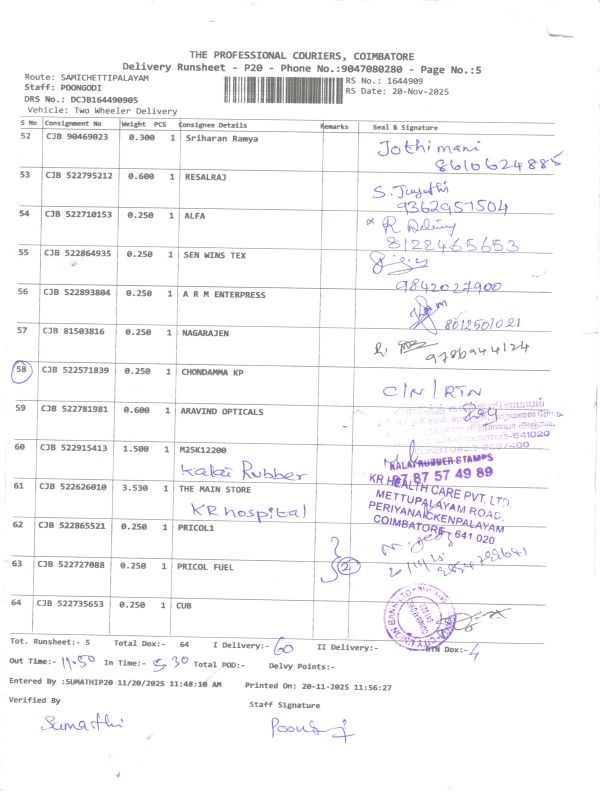 THE PROFESSIONAL COURIERS, COIMBATORE
Delivery Runsheet - P20 - Phone No.:9047080280 - Page No.:5
Route: SAMICHETTIPALAYAM
RS No.: 1644909
Staff: POONGODI
RS Date: 20-Nov-2025
DRS No.: DCJB164490905
Vehicle: Two Wheeler Delivery
S No Consignment No Weight PCS Consignee Details Remarks Seal & Signature
52 CJB 90469023 0.300 1 Sriharan Ramya
Jothimani
8610624885
53 CJB 522795212 0.600 1 RESALRAJ
9362957504
54 CJB 522710153 0.250 1 ALFA
8122465653
55 CJB 522864935 0.250 1 SEN WINS TEX
9842027900
56 CJB 522893804 0.250 1 A R M ENTERPRESS
8012501021
57 CJB 81503816 0.250 1 NAGARAJEN
9786944124
58 CJB 522571839 0.250 1 CHONDAMMA KP
C/N/RTN
59 CJB 522781981 0.600 1 ARAVIND OPTICALS
60 CJB 522915413 1.500 1 M25K12200
Kalai Rubber
KALAI RUBBER STAMPS
97,87 57 49 89
61 CJB 522626010 3.530 1 THE MAIN STORE
KR hospital
KR HEALTH CARE PVT. LTD,
METTUPALAYAM ROAD,
PERIYANAICKENPALAYAM
COIMBATORE - 641 020
62 CJB 522865521 0.250 1 PRICOL1
63 CJB 522727088 0.250 1 PRICOL FUEL
2
64 CJB 522735653 0.250 1 CUB
CITY UNION BANK LTD
Tot. Runsheet:- 5 Total Dox:- 64 I Delivery:- 60 II Delivery:- RTN Dox:- 4
Out Time:- 11.50 In Time:- 5.30 Total POD:- Delvy Points:-
Entered By :SUMATHIP20 11/20/2025 11:48:10 AM Printed On: 20-11-2025 11:56:27
Verified By Staff Signature
Sumathi